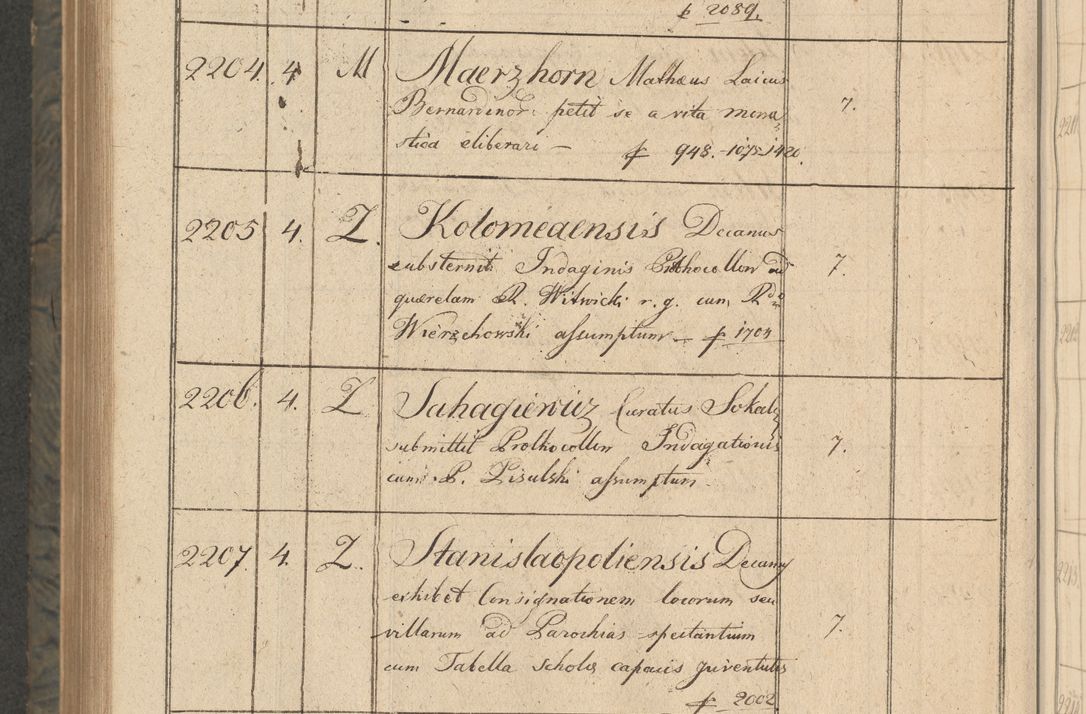 p 2089.
2204. 4. M Maerzhorn Mathæus Laicus
Bernardinor: petit se a vita mona 7.
stica eliberari — p 948. 1075. 1420.
2205 4. Z. Kolomeaensis Decanus
substernit Indaginis Prothocollon ad 7.
querelam R. Witwicki r. g. cum R
Wierzchowski assumptum — p 1704
2206. 4. Z Sahagiewicz Curatus Sokal
submittit Prothocollon Indagationis 7.
cum P. Lisulski assumptum
2207. 4. Z. Stanislaopoliensis Decanus
exhibet Consignationem locorum seu
villarum ad Parochias spectantium 7.
cum Tabella scholis capacis juventutis
p 2002.